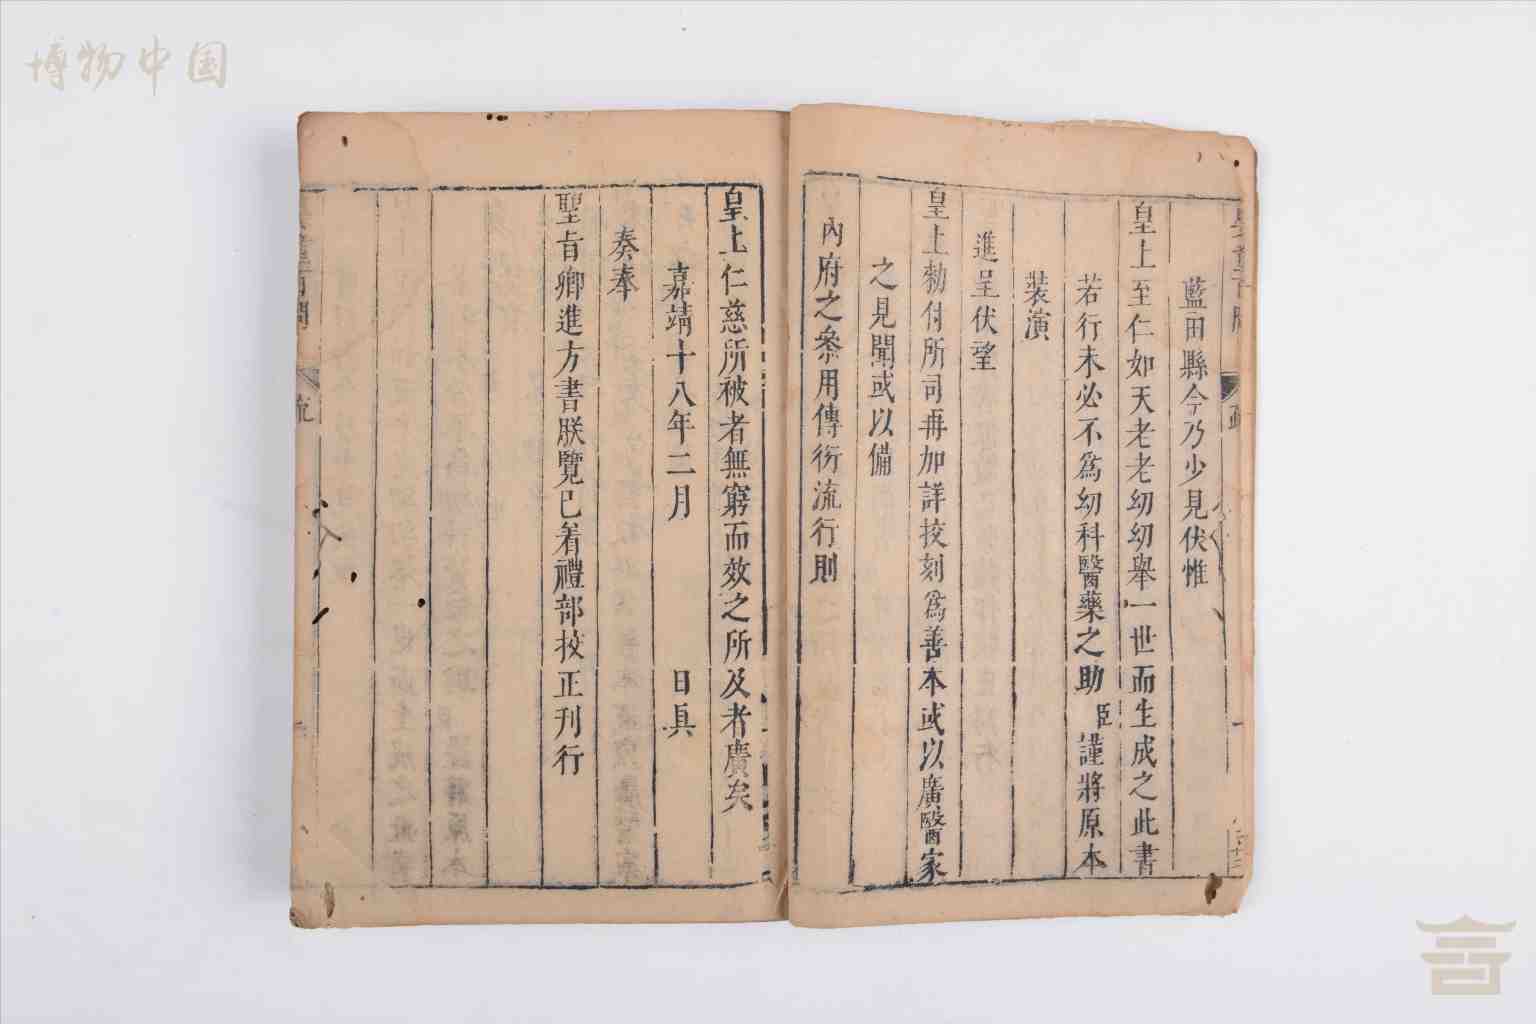 博物中国
藍田縣令乃少見伏惟
皇上至仁如天老老幼幼舉一世而生成之此書
若行未必不爲幼科醫藥之助臣謹將原本
裝演
進呈伏望
皇上勑付所司再加詳挍刻爲善本或以廣醫家
之見聞或以備
內府之叅用傳衍流行則
皇上仁慈所被者無窮而效之所及者廣矣
嘉靖十八年二月 日具
奏奉
聖旨卿進方書朕覽已着禮部挍正刊行